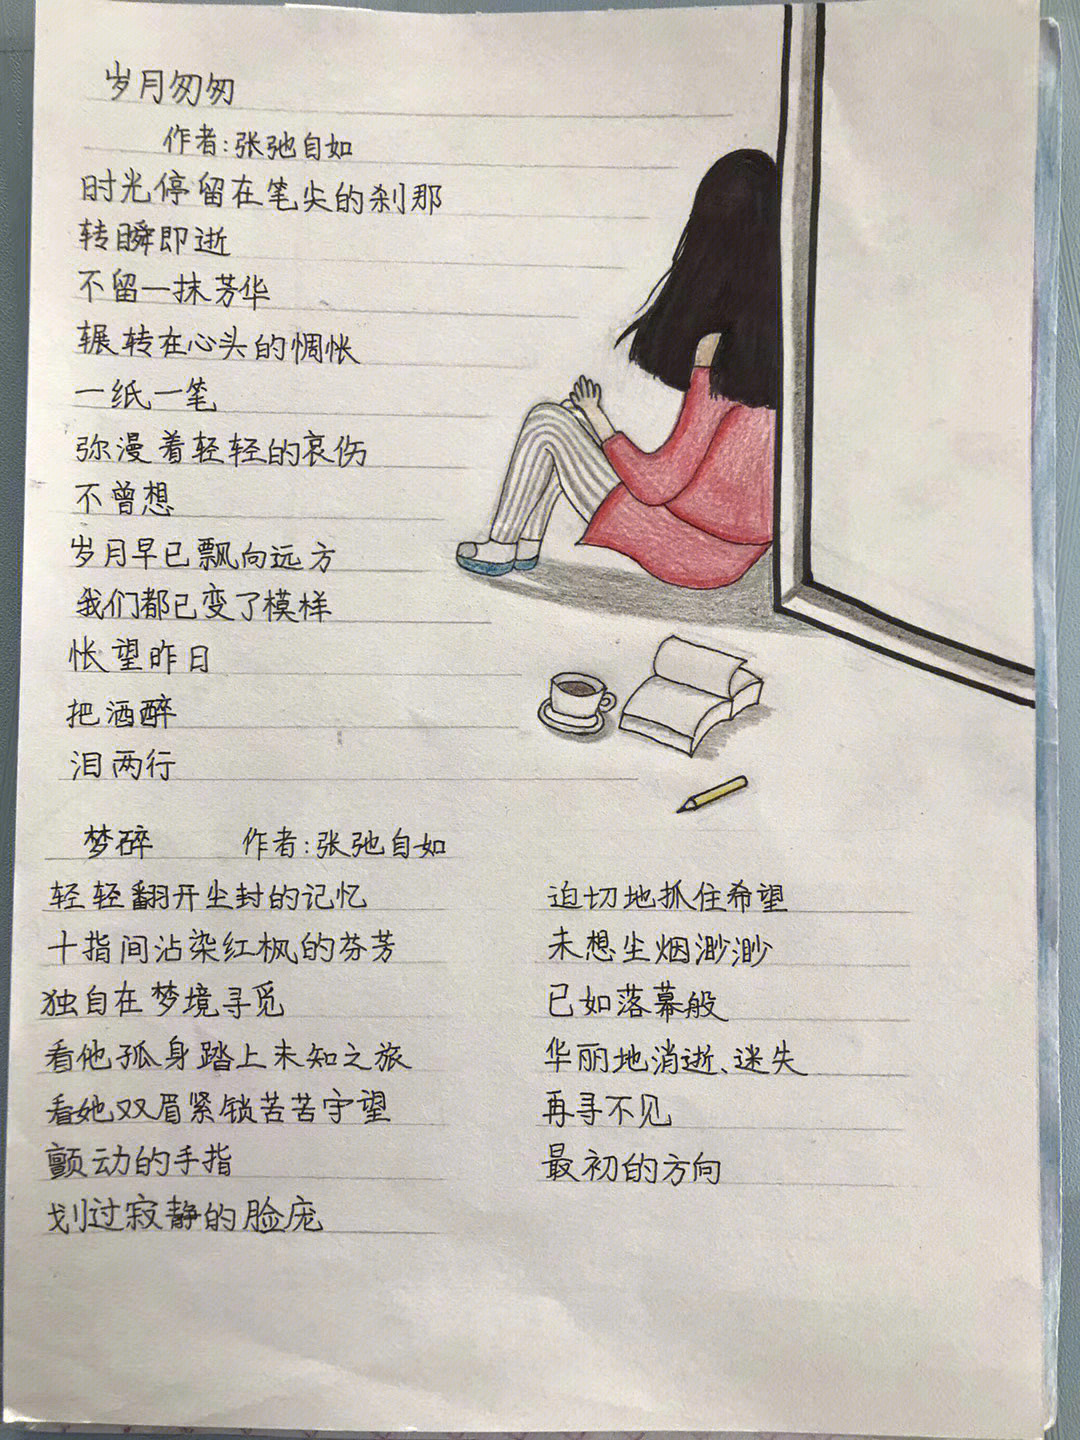 岁月匆匆
作者:张弛自如
时光停留在笔尖的刹那
转瞬即逝
不留一抹芳华
辗转在心头的惆怅
一纸一笔
弥漫着轻轻的哀伤
不曾想
岁月早已飘向远方
我们都已变了模样
怅望昨日
把酒醉
泪两行
梦碎 作者:张弛自如
轻轻翻开尘封的记忆
十指间沾染红枫的芬芳
独自在梦境寻觅
看他孤身踏上未知之旅
看她双眉紧锁苦苦守望
颤动的手指
划过寂静的脸庞
迫切地抓住希望
未想尘烟渺渺
已如落幕般
华丽地消逝、迷失
再寻不见
最初的方向